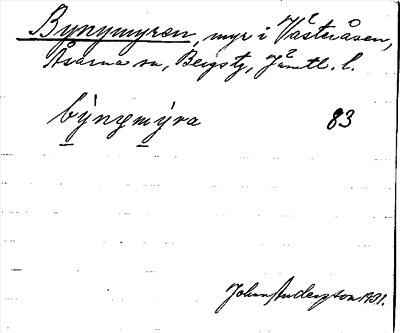 Bynymyren, myr i Västeråsen,
Åsarna sn, Bergs tg, Jämtl. l.
býnymýra 83
John Andersson 1931.